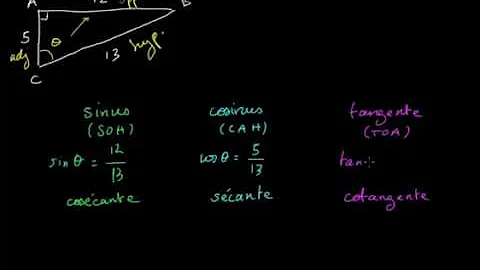 A
12 opp
B
5
adj
θ
13 hyp.
C
sinus cosinus tangente
(SOH) (CAH) (TOA)
sin θ = 12/13 cos θ = 5/13 tan
cosécante sécante cotangente